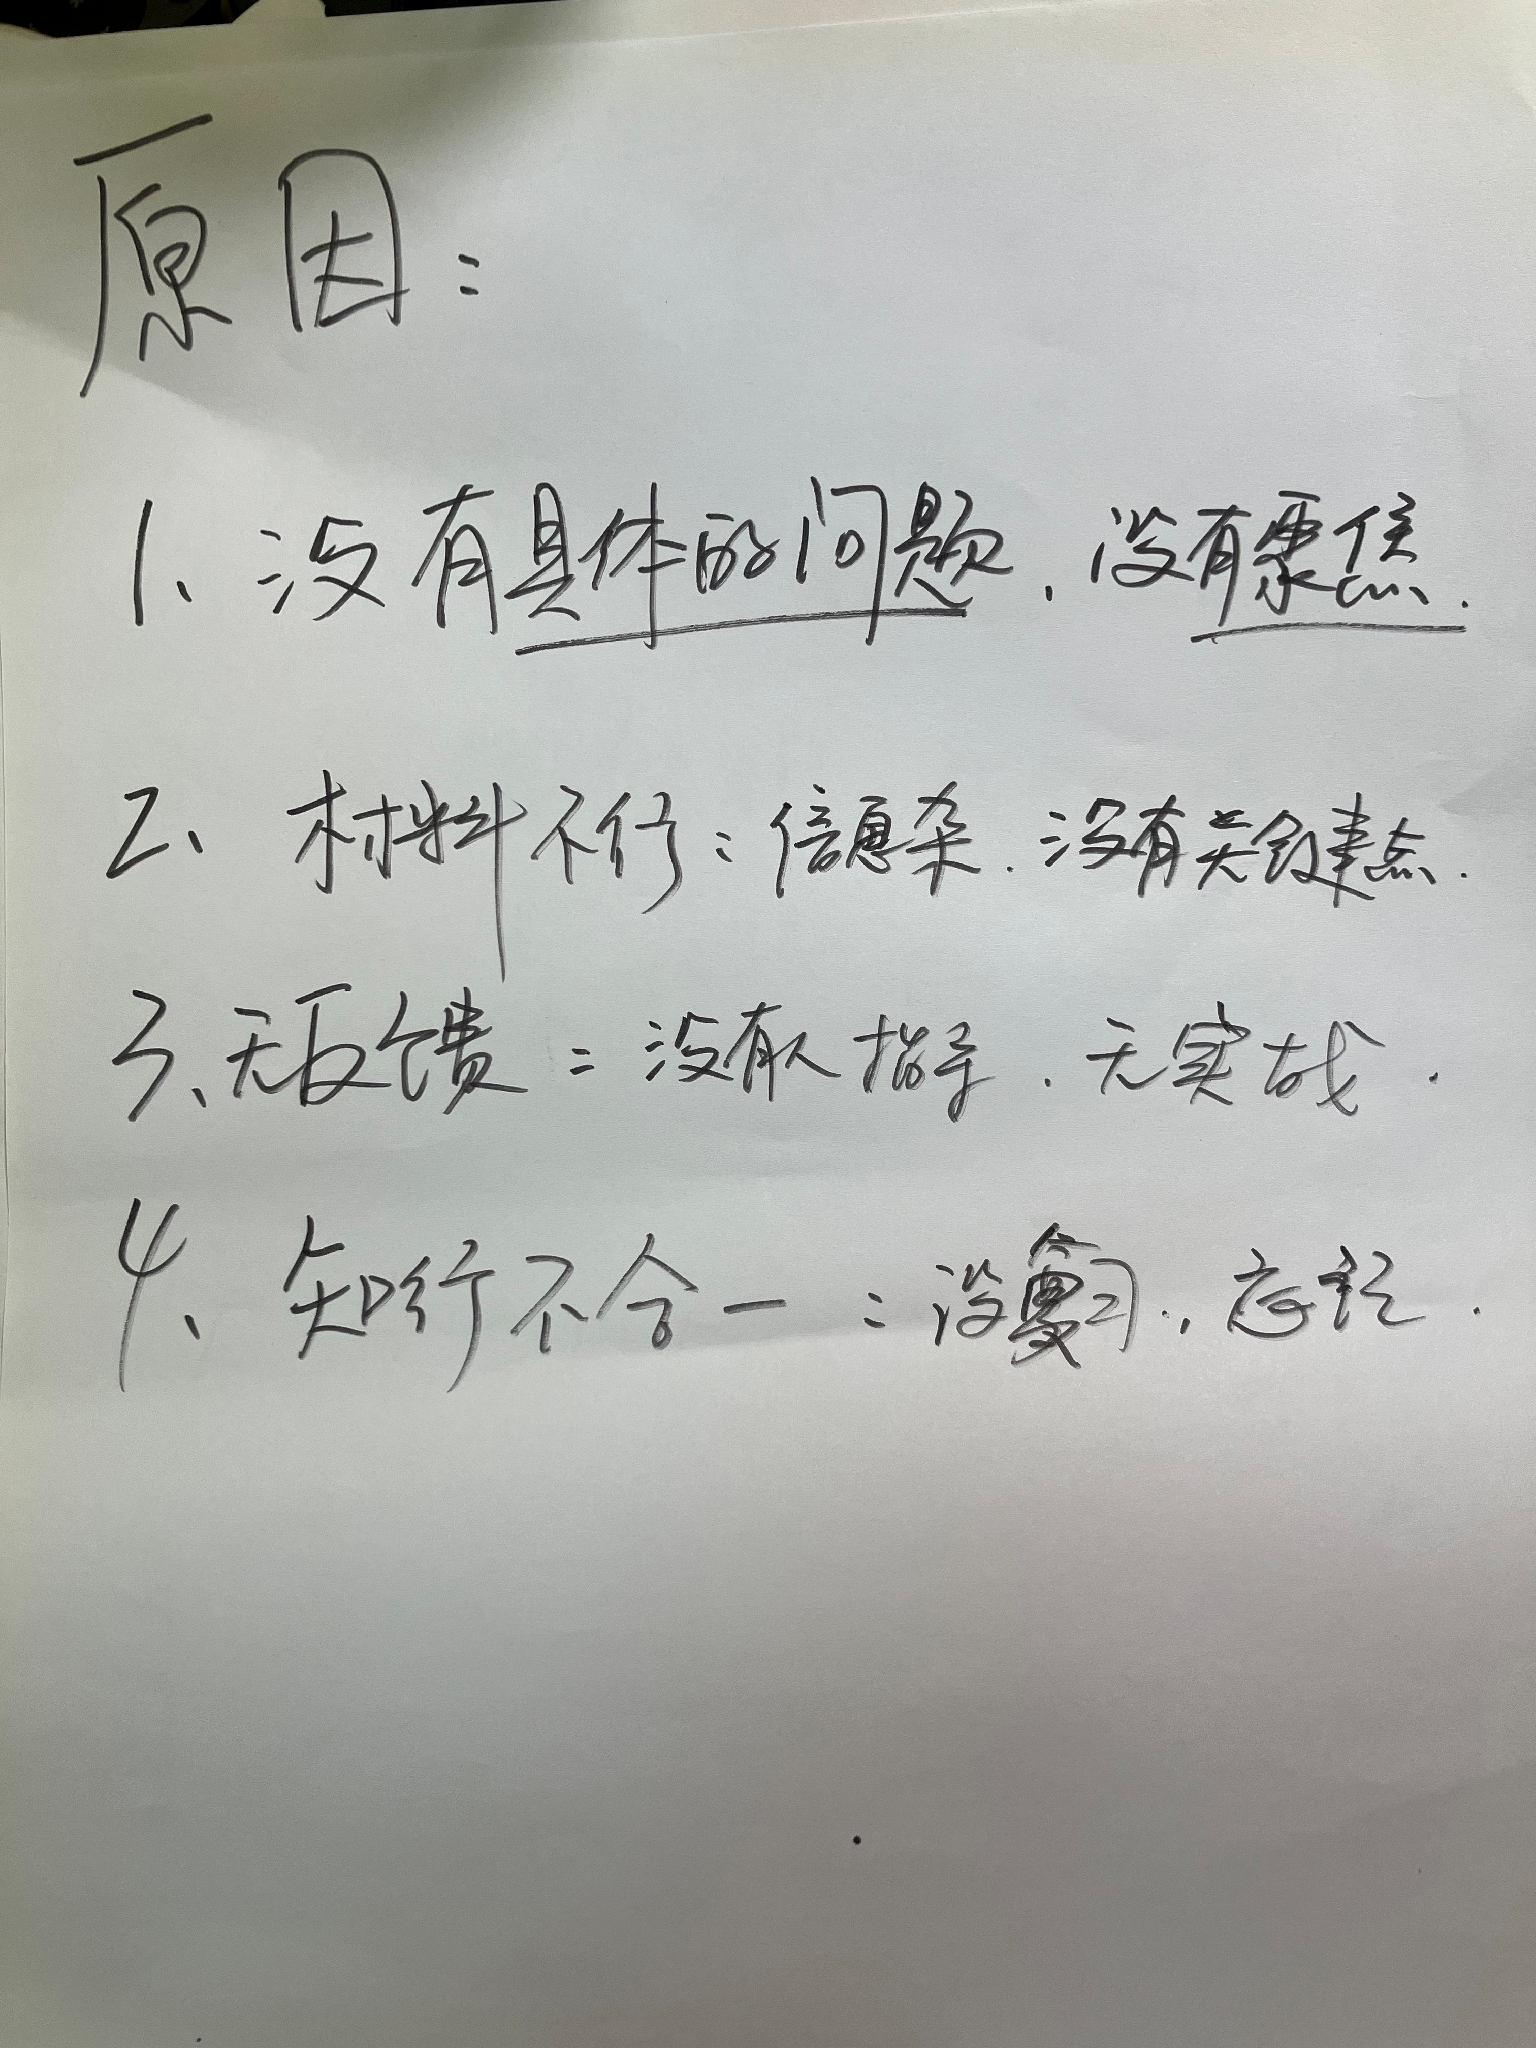 原因：
1、没有具体的问题、没有聚焦.
2、材料不行：信息杂.没有关键点.
3、无反馈：没有人指导.无实战.
4、知行不合一：没复习.，忘记.